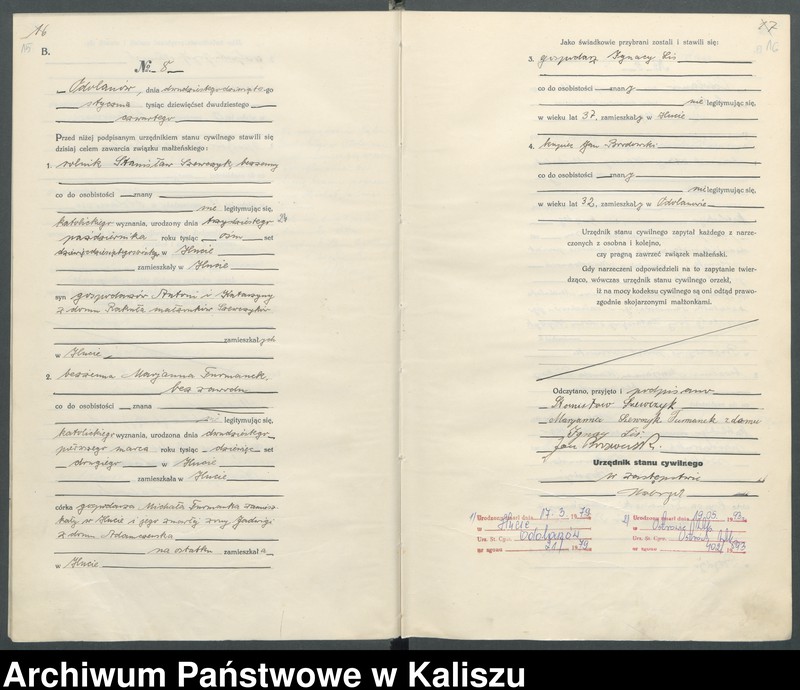 16
15
B.
No. 8
Odolanów, dnia dwudziestego dziewiątego
stycznia tysiąc dziewięćset dwudziestego
czwartego
Przed niżej podpisanym urzędnikiem stanu cywilnego stawili się
dzisiaj celem zawarcia związku małżeńskiego:
1. rolnik Stanisław Szewczyk, bezżenny
co do osobistości znany
nie legitymując się,
katolickiego wyznania, urodzony dnia trzydziestego
października roku tysiąc ośm set
w Hucie
zamieszkały w Hucie
syn gospodarzów Antoni i Katarzyny
z domu małżonków Szewczyków
zamieszkał
w Hucie
2. bezżenna Marjanna Furmanek,
bez zawodu
co do osobistości znana
legitymując się,
katolickiego wyznania, urodzona dnia dwudziestego
pierwszego marca roku tysiąc dziewięć set
drugiego w Hucie
zamieszkała w Hucie
córka gospodarza Michała Furmanka zamiesz-
kały w Hucie i jego zmarłej żony Jadwigi
z domu
na ostatku zamieszkała
w Hucie
17
16
Jako świadkowie przybrani zostali i stawili się:
3. gospodarz Ignacy Liś
co do osobistości znany
nie legitymując się,
w wieku lat 37, zamieszkały w Hucie
4. Jan
co do osobistości znany
nie legitymując się,
w wieku lat 32, zamieszkały w Odolanowie
Urzędnik stanu cywilnego zapytał każdego z narze-
czonych z osobna i kolejno,
czy pragną zawrzeć związek małżeński.
Gdy narzeczeni odpowiedzieli na to zapytanie twier-
dząco, wówczas urzędnik stanu cywilnego orzekł,
iż na mocy kodeksu cywilnego są oni odtąd prawo-
zgodnie skojarzonymi małżonkami.
Odczytano, przyjęto i podpisano
Stanisław Szewczyk
Maryanna Szewczyk Furmanek z domu
Ignacy Liś
Jan
Urzędnik stanu cywilnego
w zastępstwie
1) zmarł dnia 17.3 1979
w Hucie
Urz. St. Cyw. Odolanów
nr zgonu 21/1979
2) zmarł dnia 19.05. 1993
w Ostrowie Wlkp
Urz. St. Cyw. Ostrów Wlkp
nr zgonu 402/1993
Archiwum Państwowe w Kaliszu